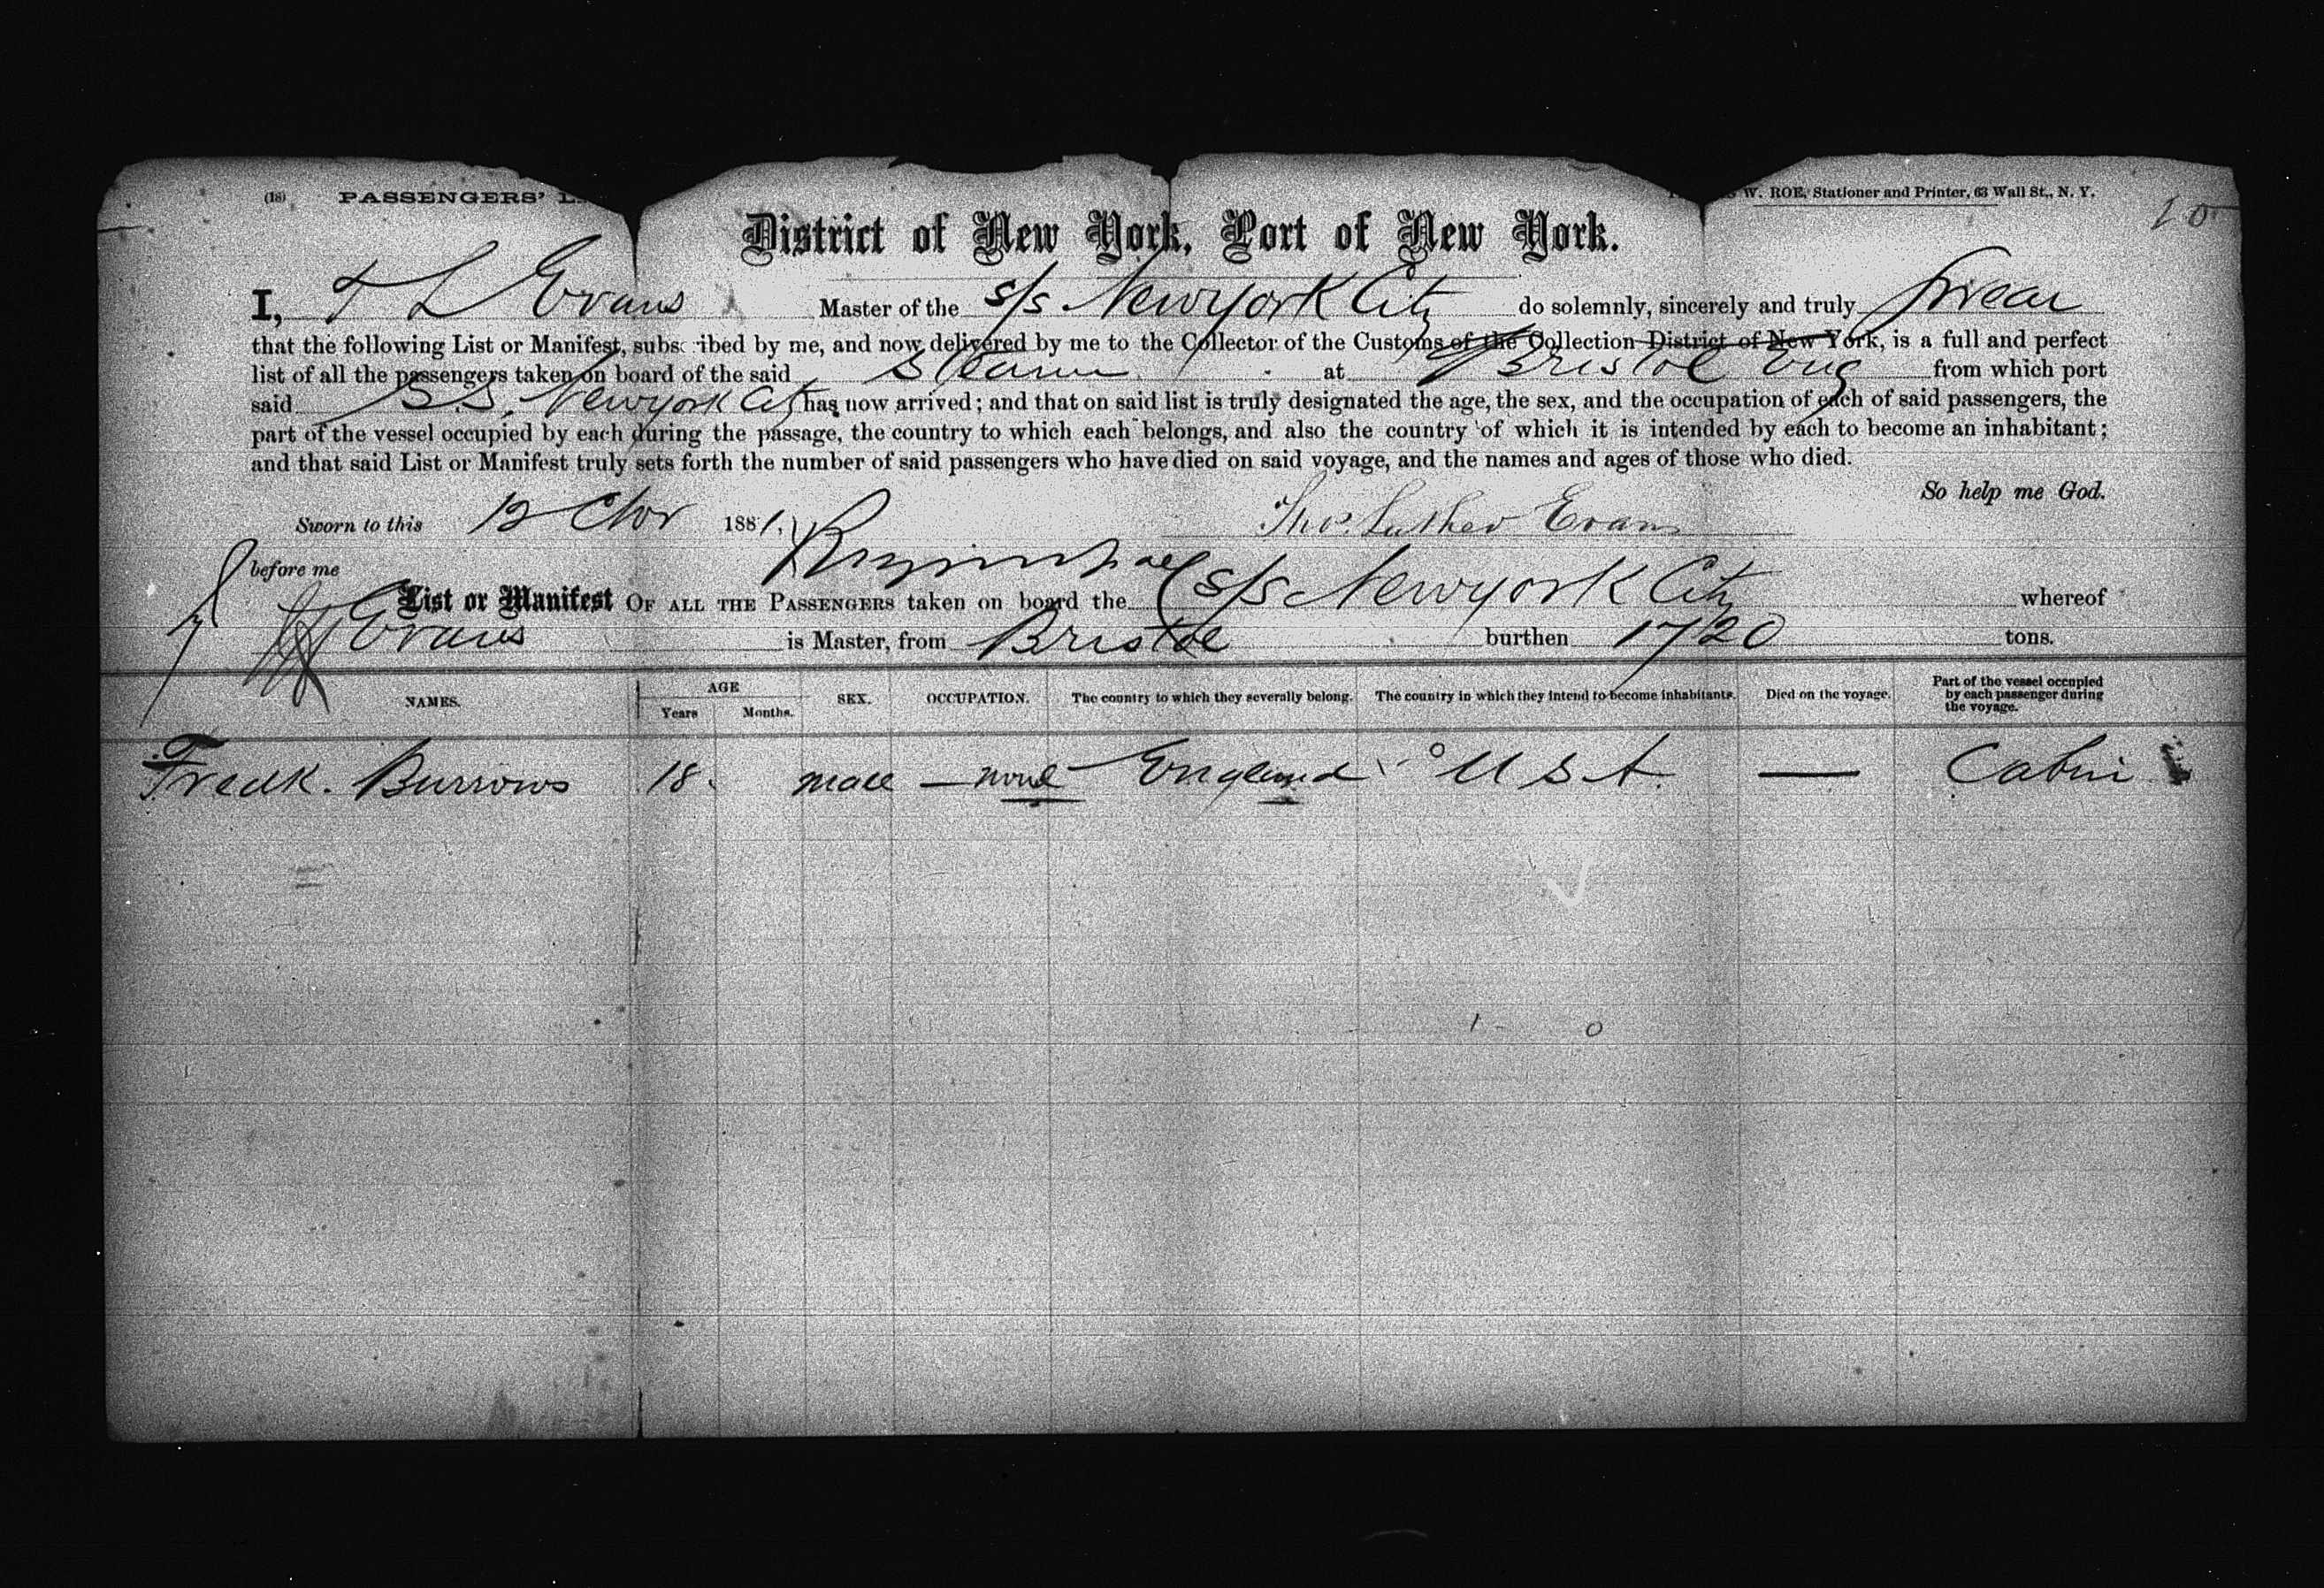 (18) PASSENGERS'
W. ROE, Stationer and Printer, 63 Wall St., N. Y.
10
District of New York, Port of New York.
I, T L Evans Master of the S/S New York City do solemnly, sincerely and truly swear
that the following List or Manifest, subscribed by me, and now delivered by me to the Collector of the Customs of the Collection District of New York, is a full and perfect
list of all the passengers taken on board of the said Steamer at Bristol Eng from which port
said S.S. New York City has now arrived; and that on said list is truly designated the age, the sex, and the occupation of each of said passengers, the
part of the vessel occupied by each during the passage, the country to which each belongs, and also the country of which it is intended by each to become an inhabitant;
and that said List or Manifest truly sets forth the number of said passengers who have died on said voyage, and the names and ages of those who died.
So help me God.
Sworn to this 12 1881. Thos. Luther Evans
before me
List or Manifest OF ALL THE PASSENGERS taken on board the S/S New York City whereof
Evans is Master, from Bristol burthen 1720 tons.
NAMES. AGE Years Months. SEX. OCCUPATION. The country to which they severally belong. The country in which they intend to become inhabitants. Died on the voyage. Part of the vessel occupied by each passenger during the voyage.
Fredk. Burrows 18 male — none England U S A — Cabin
1 0